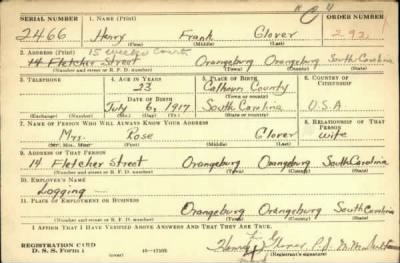 SERIAL NUMBER 1. NAME (Print) ORDER NUMBER
2466 Henry Frank Glover 292
(First) (Middle) (Last)
2. ADDRESS (Print) 15 Court
14 Fletcher Street Orangeburg Orangeburg South Carolina
(Number and street or R. F. D. number) (Town) (County) (State)
3. TELEPHONE 4. AGE IN YEARS 5. PLACE OF BIRTH 6. COUNTRY OF CITIZENSHIP
23 Calhoun County
DATE OF BIRTH (Town or county)
July 6, 1917 South Carolina U.S.A
(Exchange) (Number) (Mo.) (Day) (Yr.) (State or country)
7. NAME OF PERSON WHO WILL ALWAYS KNOW YOUR ADDRESS 8. RELATIONSHIP OF THAT PERSON
Mrs. Rose Glover Wife
(Mr., Mrs., Miss) (First) (Middle) (Last)
9. ADDRESS OF THAT PERSON
14 Fletcher Street Orangeburg Orangeburg South Carolina
(Number and street or R. F. D. number) (Town) (County) (State)
10. EMPLOYER'S NAME
Logging
11. PLACE OF EMPLOYMENT OR BUSINESS
Orangeburg Orangeburg South Carolina
(Number and street or R. F. D. number) (Town) (County) (State)
I AFFIRM THAT I HAVE VERIFIED ABOVE ANSWERS AND THAT THEY ARE TRUE.
REGISTRATION CARD
D. S. S. FORM 1
Henry Glover
(Registrant's signature)